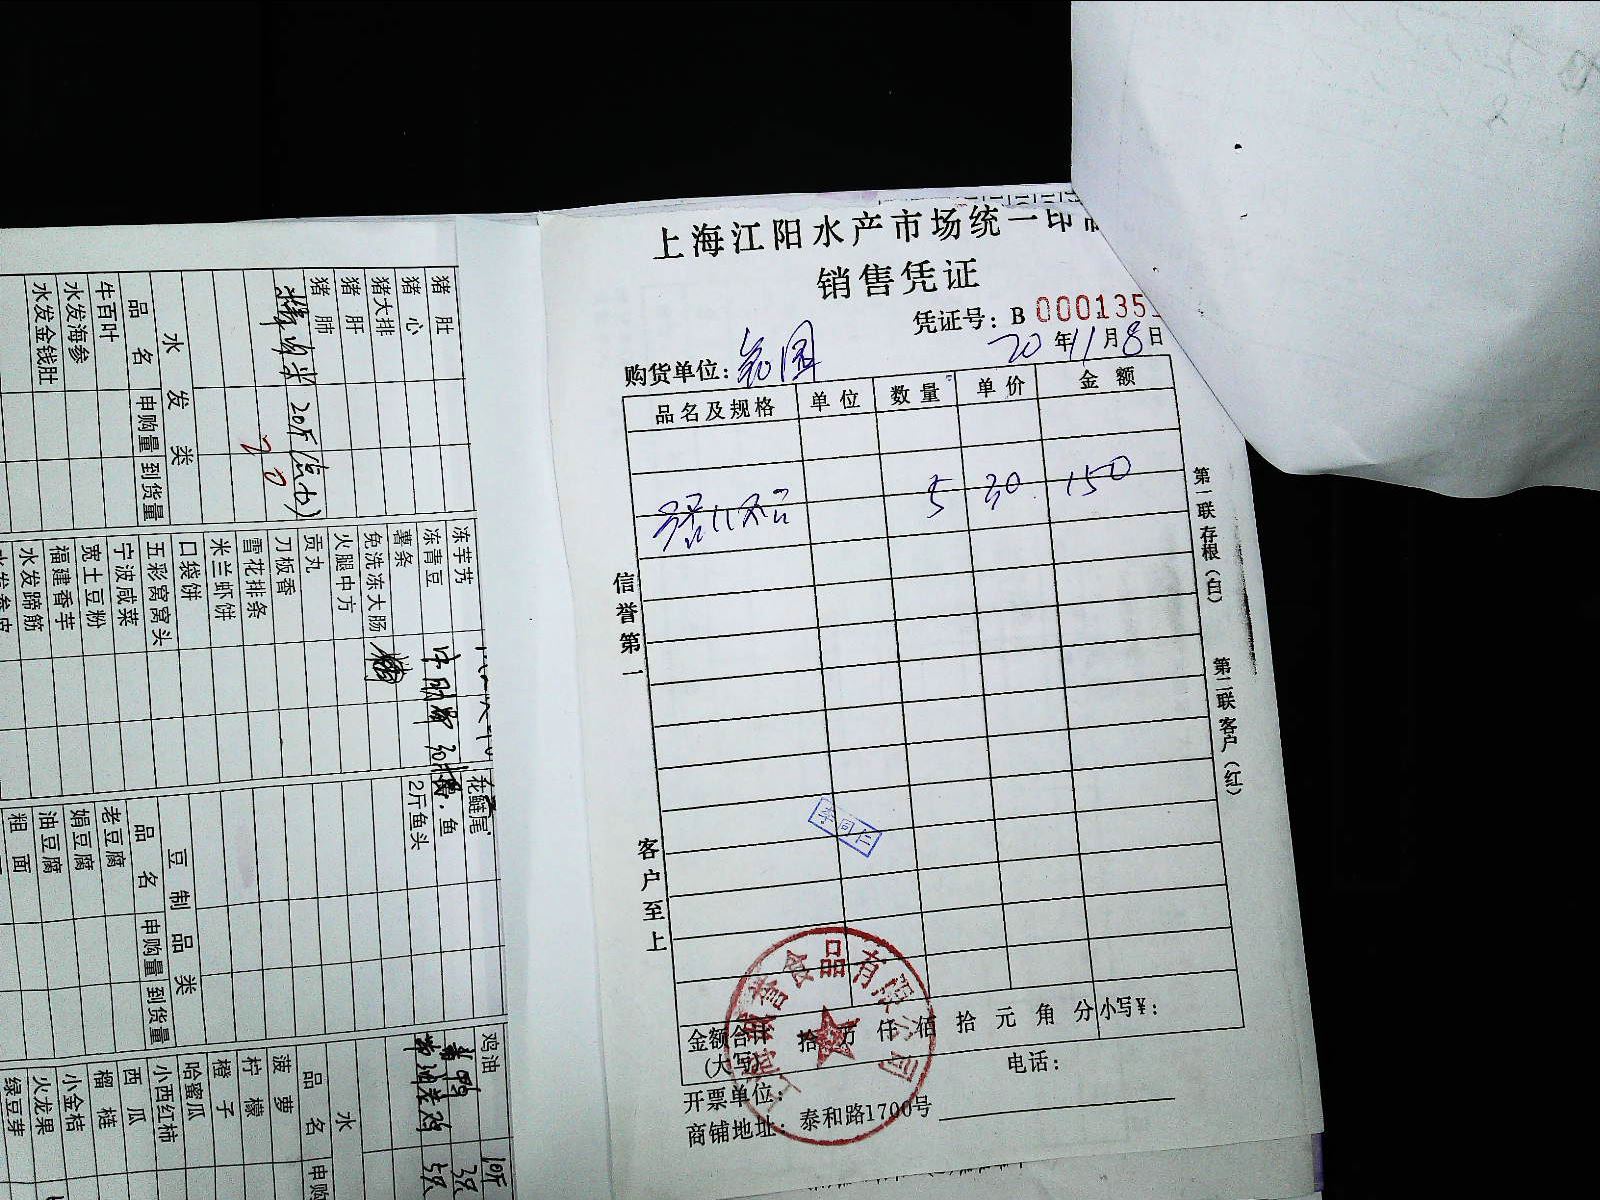 上海江阳水产市场统一印
销售凭证
凭证号: B 000135
20年11月8日
购货单位:
品名及规格 单位 数量 单价 金额
5 30 150
信誉第一
客户至上
第一联存根(白)
第二联客户(红)
李同仁
食品有限公司
金额合计(大写) 拾 万 仟 佰 拾 元 角 分 小写¥:
电话:
开票单位:
商铺地址: 泰和路1700号
猪肚
猪心
猪大排
猪肝
猪肺
20斤
20
水发类
品名 申购量 到货量
牛百叶
水发海参
水发金钱肚
冻芋艿
冻青豆
薯条
免洗冻大肠
火腿中方
贡丸
刀板香
雪花排条
米兰虾饼
口袋饼
五彩窝窝头
宁波咸菜
宽土豆粉
福建香芋
水发蹄筋
花鲢尾
鱼
2斤鱼头
豆制品类
品名 申购量 到货量
老豆腐
娟豆腐
油豆腐
粗面
鸡油 10斤
3只
5只
水
品名 申购
菠萝
柠檬
橙子
哈蜜瓜
小西红柿
西瓜
榴梿
小金桔
火龙果
绿豆芽